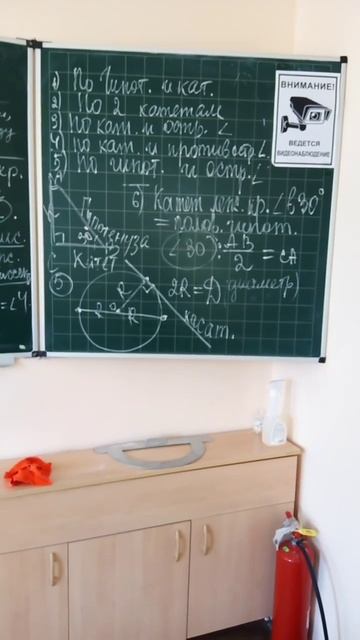 1) По гипот. и кат.
2) По 2 катетам
3) По кат. и остр. ∠
4) по кат. и против. остр. ∠.
5) По гипот. и остр. ∠.
6) Катет леж. пр. ∠ в 30°
= полов. гипот.
∠30°: AB/2 = CA
Гипотенуза
30°
Катет
5
R
2R = D (диаметр)
R O R
касат.
ВНИМАНИЕ!
ВЕДЕТСЯ
ВИДЕОНАБЛЮДЕНИЕ
кр.
= ∠4